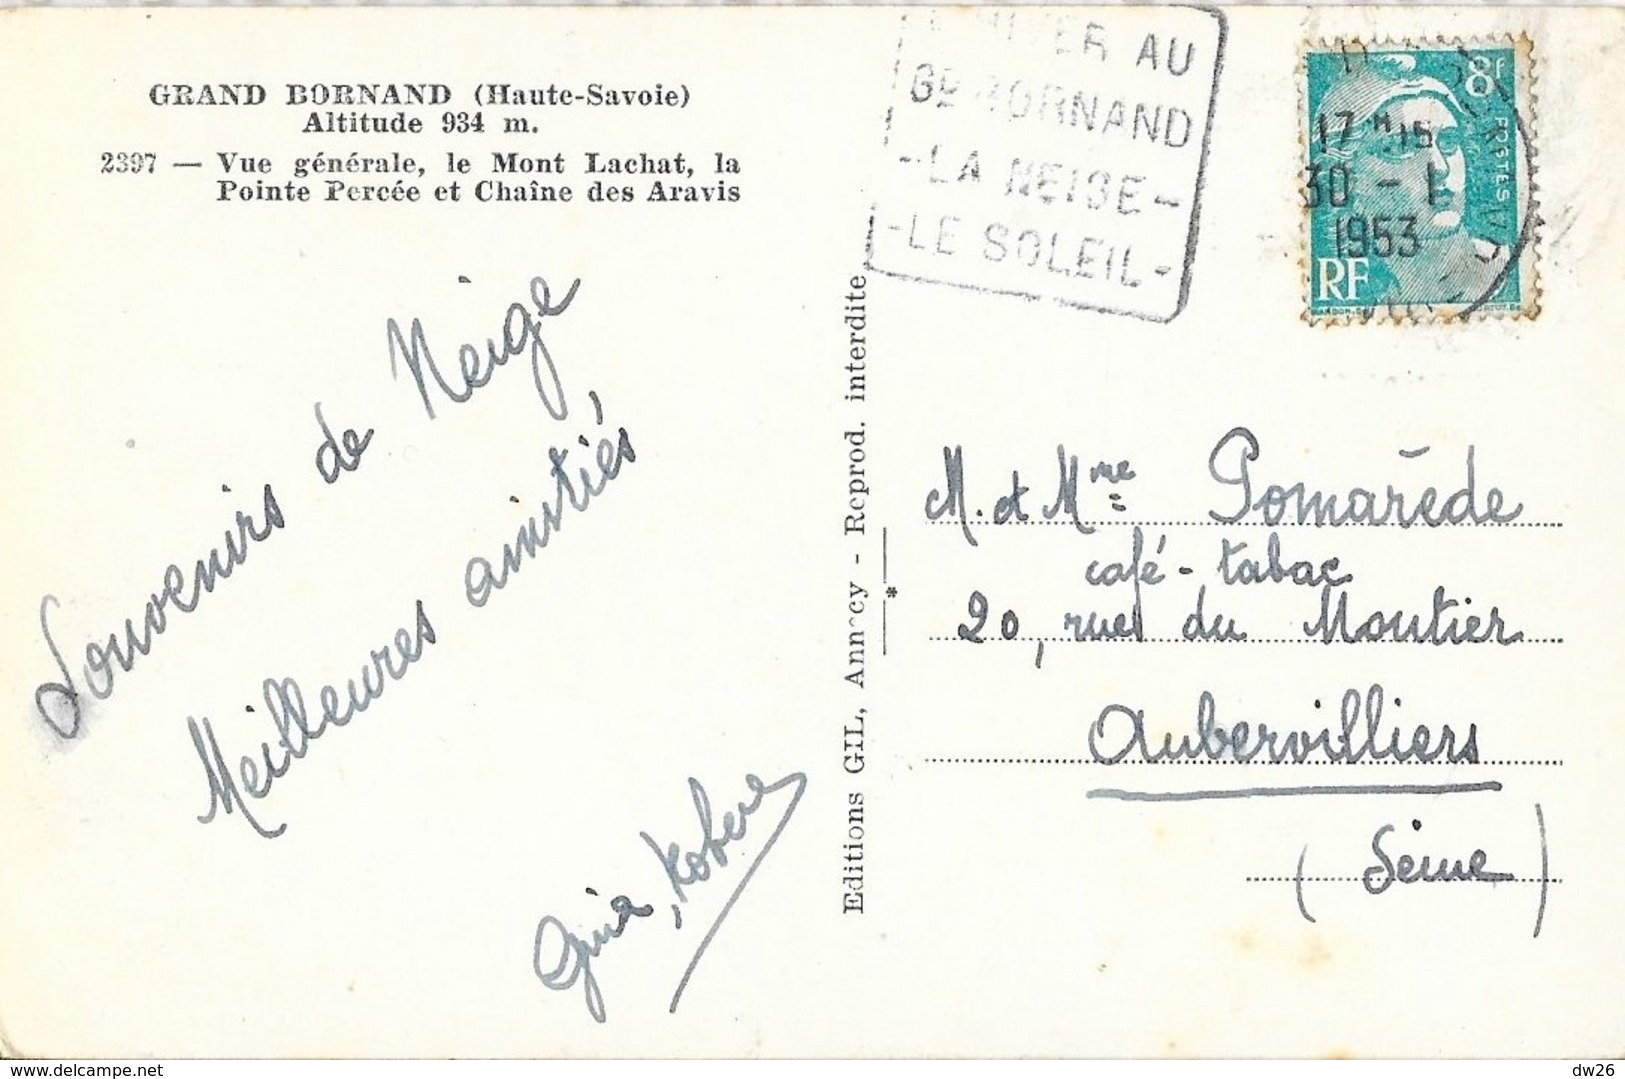 GRAND BORNAND (Haute-Savoie)
Altitude 934 m.
2397 — Vue générale, le Mont Lachat, la
Pointe Percée et Chaîne des Aravis
Souvenirs de Neige
Meilleures amitiés
Gina,
Editions GIL, Annecy - Reprod. interdite
*
AU
GD BORNAND
-LA NEIGE-
-LE SOLEIL-
8f
POSTES
RF
17 H 15
30 - 1
1953
M. et Mme Pomarède
café-tabac
20, rue du Moutier
Aubervilliers
(Seine)
delcampe.net
dw26